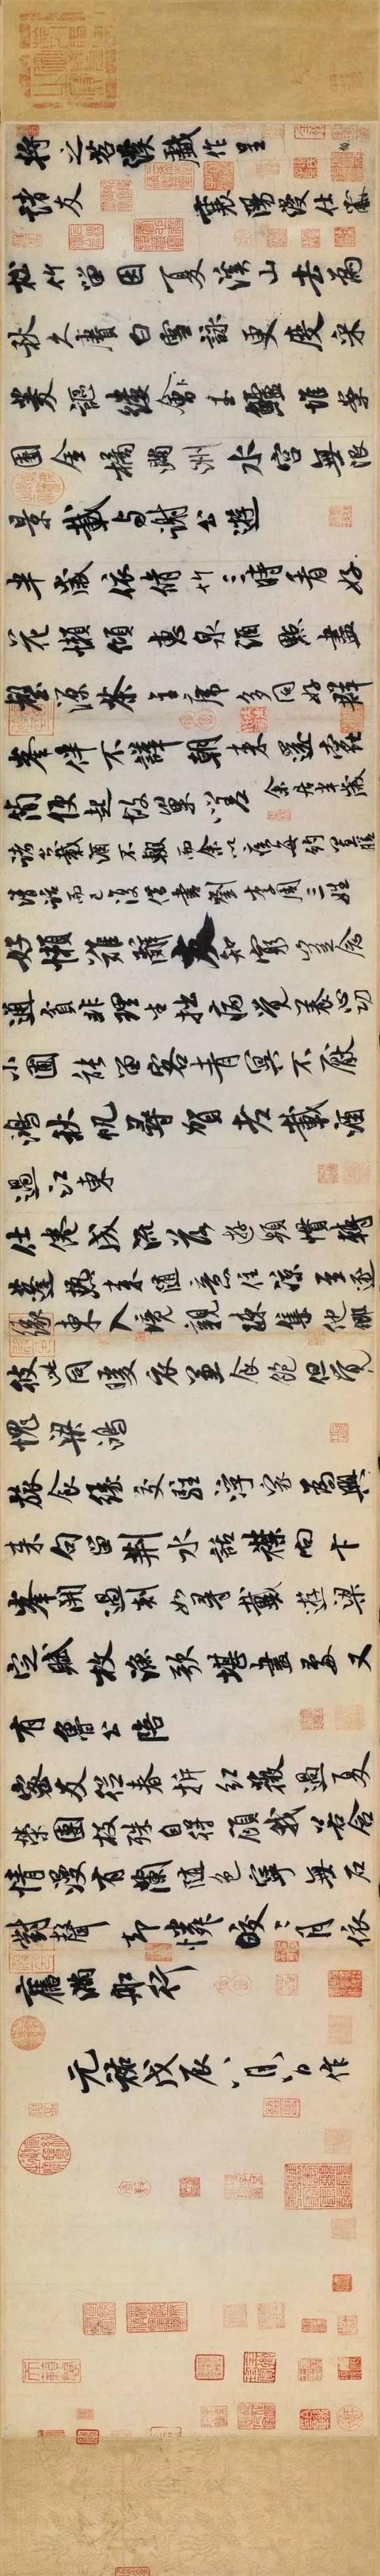 將之苕溪戲作呈
諸友 襄陽漫仕黻
松竹留因夏溪山去為
秋久賡白雪詠更度采
菱謳縷會玉鱸堆案
團金橘滿洲水宮無限
景載與謝公遊
半歲依脩竹三時看好
花懶傾惠泉酒點盡
壑源茶主席多同好群
峰伴不譁朝來還蠹
簡便起故巢嗟 余居半歲
諸公載酒不輟而余以疾每約置膳
清話而已復借書劉李周三姓
好懶難辭友知窮豈念
通貧非理生拙病覺養心功
小圃能留客青冥不厭
鴻秋帆尋賀老載酒
過江東
仕倦成流落遊頻慣轉
蓬熱來隨意住涼至逐
緣東入境親疏集他鄉
彼此同暖衣兼食飽但覺
愧梁鴻
旅食緣交駐浮家為興
來句留荊水話襟向卞
峰開過剡如尋戴遊梁
定賦枚漁歌堪畫處又
有魯公陪
密友從春拆紅薇過夏
榮團枝殊自得顧我若含
情漫有蘭隨色寧無石
對聲却憐皎皎月依
舊滿船行
元祐戊辰八月八日作